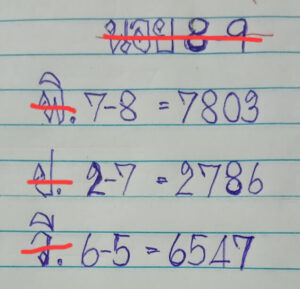 หวย 89
พิ. 7-8 = 7803
ป. 2-7 = 2786
วี. 6-5 = 6547